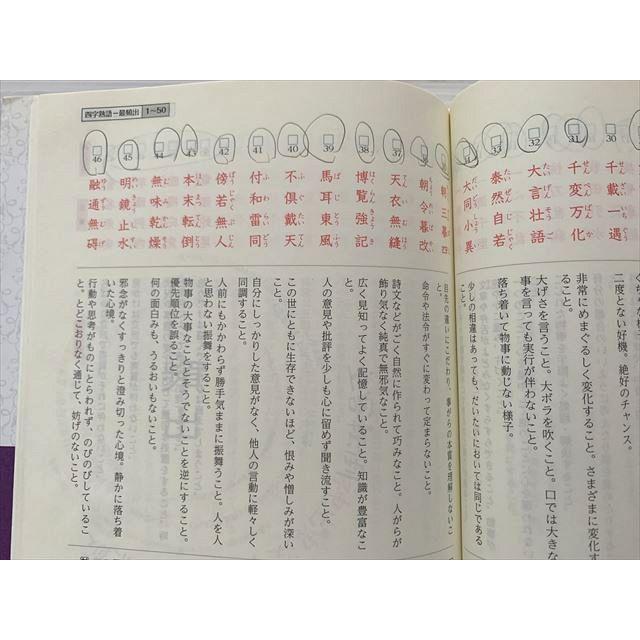 四字熟語ー最頻出 1〜50
二度とない好機。絶好のチャンス。
30
千載一遇
非常にめまぐるしく変化すること。さまざまに変化す
ること。
31
千変万化
大げさを言うこと。大ボラを吹くこと。口では大きな
事を言っても実行が伴わないこと。
32
大言壮語
落ち着いて物事に動じない様子。
33
泰然自若
少しの相違はあっても、だいたいにおいては同じである
こと。
大同小異
三暮四
目先の違いにこだわり、事がらの本質を理解しないこ
と。
朝令暮改
命令や法令がすぐに変わって定まらないこと。
37
天衣無縫
詩文などがごく自然に作られて巧みなこと。人がらが
飾りなく純真で無邪気なこと。
38
博覧強記
広く見知ってよく記憶していること。知識が豊富なこ
と。
39
馬耳東風
人の意見や批評を少しも心に留めず聞き流すこと。
40
不倶戴天
この世にともに生存できないほど、恨みや憎しみが深い
こと。
41
付和雷同
自分にしっかりした意見がなく、他人の言動に軽々しく
同調すること。
42
傍若無人
人前にもかかわらず勝手気ままに振舞うこと。人を人
と思わない振舞をすること。
43
本末転倒
物事の大事なこととそうでないことを逆にすること。
優先順位を誤ること。
44
無味乾燥
何の面白みも、うるおいもないこと。
45
明鏡止水
邪念がなくすっきりと澄み切った心境。静かに落ち着
いた心境。
46
融通無碍
行動や思考がものにとらわれず、のびのびしているこ
と。とどこおりなく通じて、妨げのないこと。